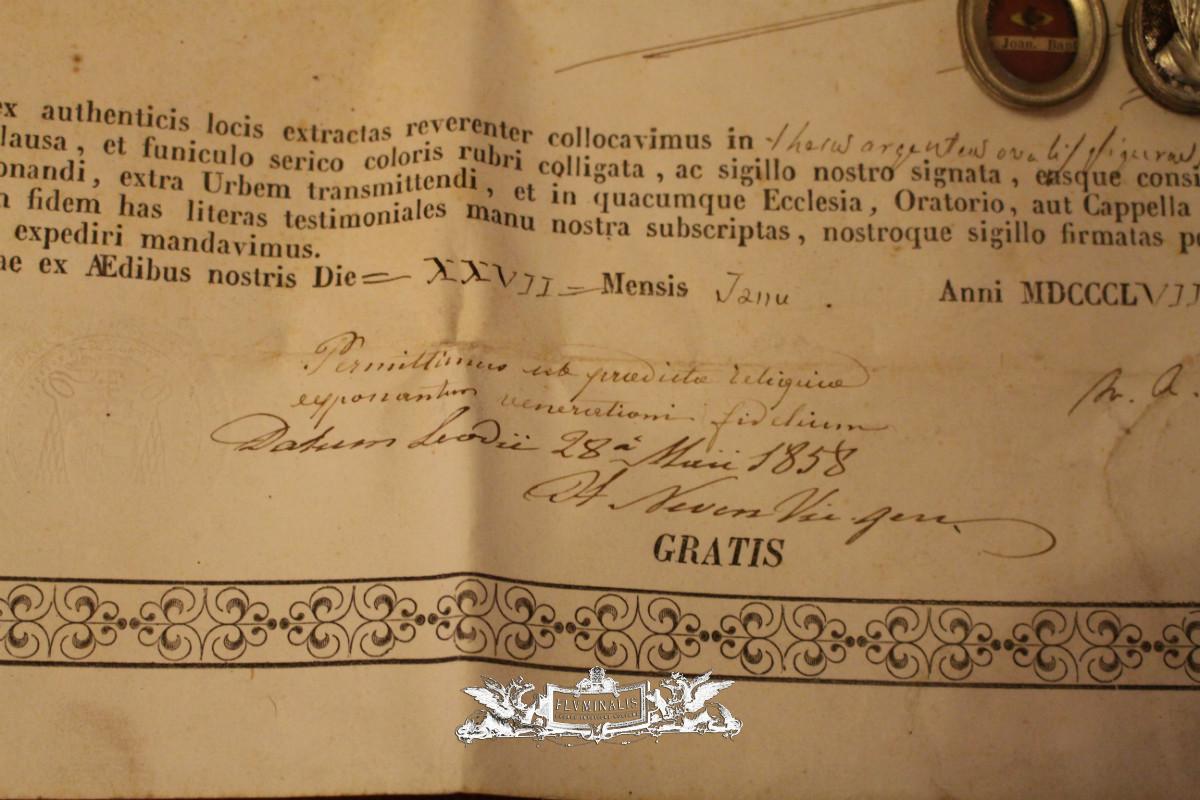 Joan. Bapt
ex authenticis locis extractas reverenter collocavimus in theca argentea ovalis figurae
lausa, et funiculo serico coloris rubri colligata, ac sigillo nostro signata, easque consi
onandi, extra Urbem transmittendi, et in quacumque Ecclesia, Oratorio, aut Cappella
n fidem has literas testimoniales manu nostra subscriptas, nostroque sigillo firmatas pe
expediri mandavimus.
ae ex Ædibus nostris Die = XXVII = Mensis Janu . Anni MDCCCLVII
Permittimus ut praedictae reliquiae
exponantur venerationi fidelium
Datum Leodii 28â Maii 1858
H. Neven Vic. gen.
GRATIS
FLVMINALIS